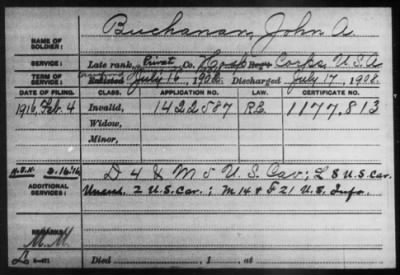 Buchanan, John A
NAME OF SOLDIER:
SERVICE: Late rank, Privat Co. Hosp Reg't Corps, U.S.A
TERM OF SERVICE: Enlisted July 16, 1908. Discharged July 17, 1908.
DATE OF FILING. CLASS. APPLICATION NO. LAW. CERTIFICATE NO.
1916, Feb. 4 Invalid, 1422587 R.L. 1177,813
Widow,
Minor,
D 4 & M 5 U.S. Cav; L 8 U.S. Cav.
ADDITIONAL SERVICES: Unass. 2 U.S. Cav.; M 14 & F 21 U.S. Inf.
REMARKS:
M.M.
Died , 1 , at